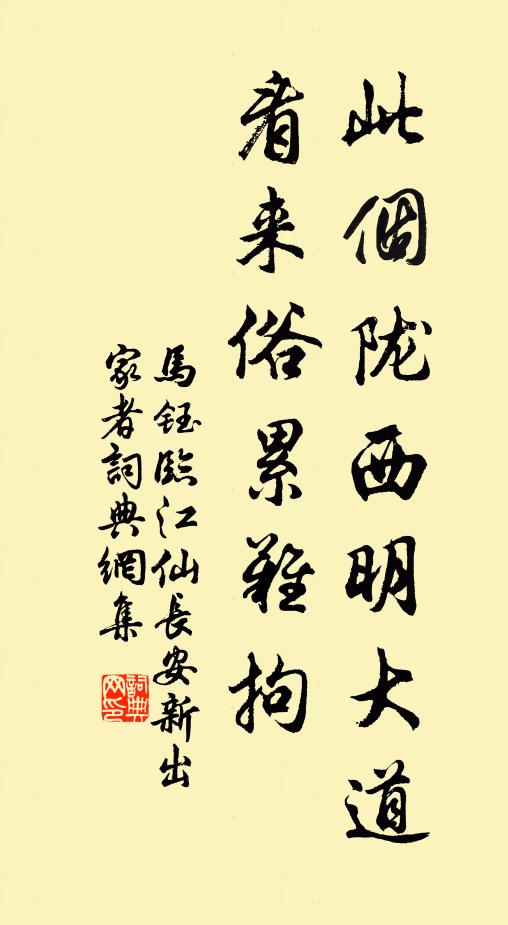 此個陇西明大道
看来俗累難拘
馬鈺臨江仙長安新出
家者詞典網集
詞典
网印